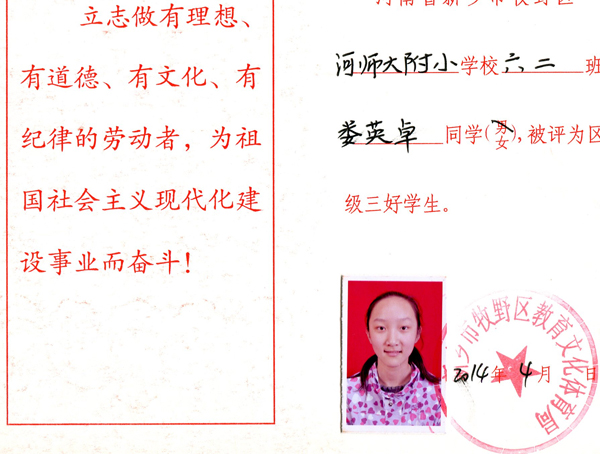 立志做有理想、
有道德、有文化、有
纪律的劳动者，为祖
国社会主义现代化建
设事业而奋斗！
河南省新乡市牧野区
河师大附小学校六二班
娄英卓同学(男女),被评为区
级三好学生。
乡市牧野区教育文化体育局
2014年4月 日